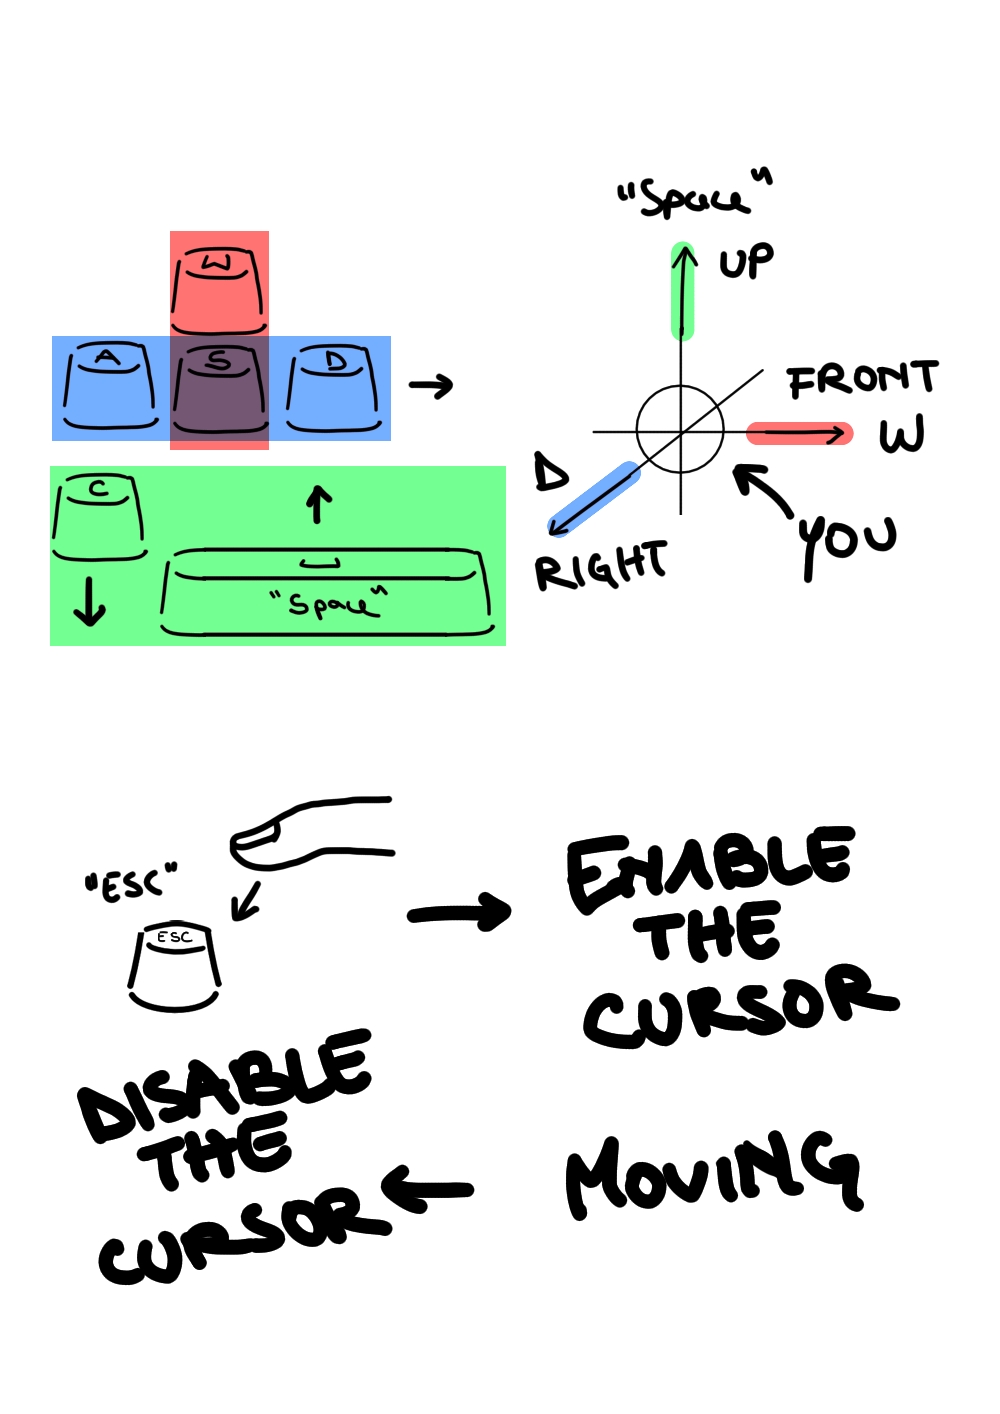 W
A S D
C
"Space"
"Space"
UP
FRONT
W
D
RIGHT
YOU
"ESC"
ESC
ENABLE
THE
CURSOR
MOVING
DISABLE
THE
CURSOR